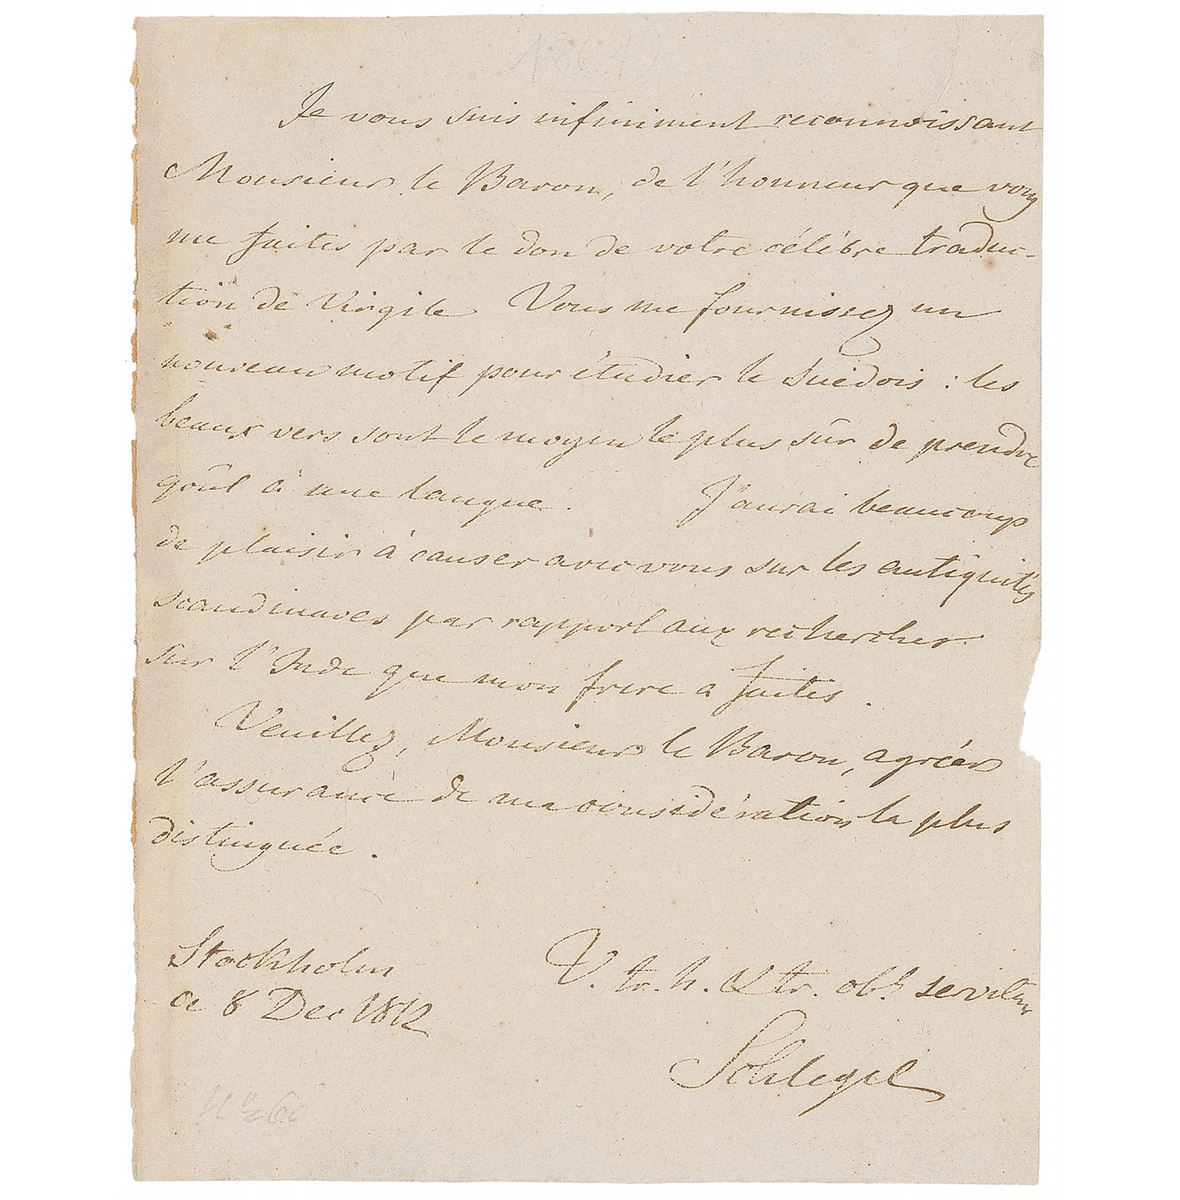 Je vous suis infiniment reconnoissant
Monsieur le Baron, de l'honneur que vous
me faites par le don de votre célèbre traduc-
tion de Virgile Vous me fournissez un
nouveau motif pour étudier le Suédois : les
beaux vers sont le moyen le plus sûr de prendre
goût à une langue. J'aurai beaucoup
de plaisir à causer avec vous sur les antiquités
scandinaves par rapport aux recherches
sur l'Inde que mon frere a faites.
Veuillez, Monsieur le Baron, agréer
l'assurance de ma considération la plus
distinguée.
V. tr. h. & tr. ob. serviteur
Schlegel
Stockholm
ce 8 Dec 1812